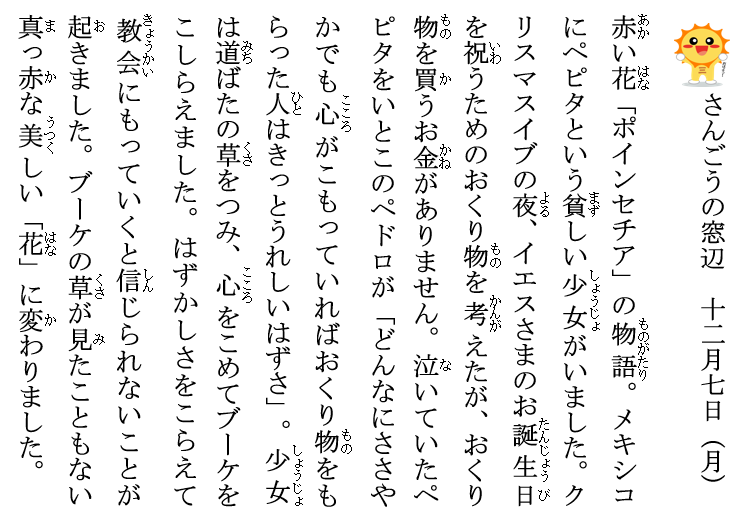 さんごうの窓辺　十二月七日（月）
赤い花「ポインセチア」の物語。メキシコ
にペピタという貧しい少女がいました。ク
リスマスイブの夜、イエスさまのお誕生日
を祝うためのおくり物を考えたが、おくり
物を買うお金がありません。泣いていたペ
ピタをいとこのペドロが「どんなにささや
かでも心がこもっていればおくり物をも
らった人はきっとうれしいはずさ」。少女
は道ばたの草をつみ、心をこめてブーケを
こしらえました。はずかしさをこらえて
教会にもっていくと信じられないことが
起きました。ブーケの草が見たこともない
真っ赤な美しい「花」に変わりました。